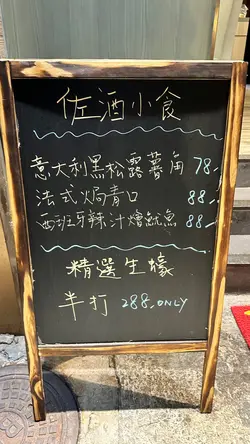 佐酒小食
意大利黑松露薯角 78.-
法式焗青口 88.-
西班牙辣汁燴魷魚 88.-
精選生蠔
半打 288. ONLY